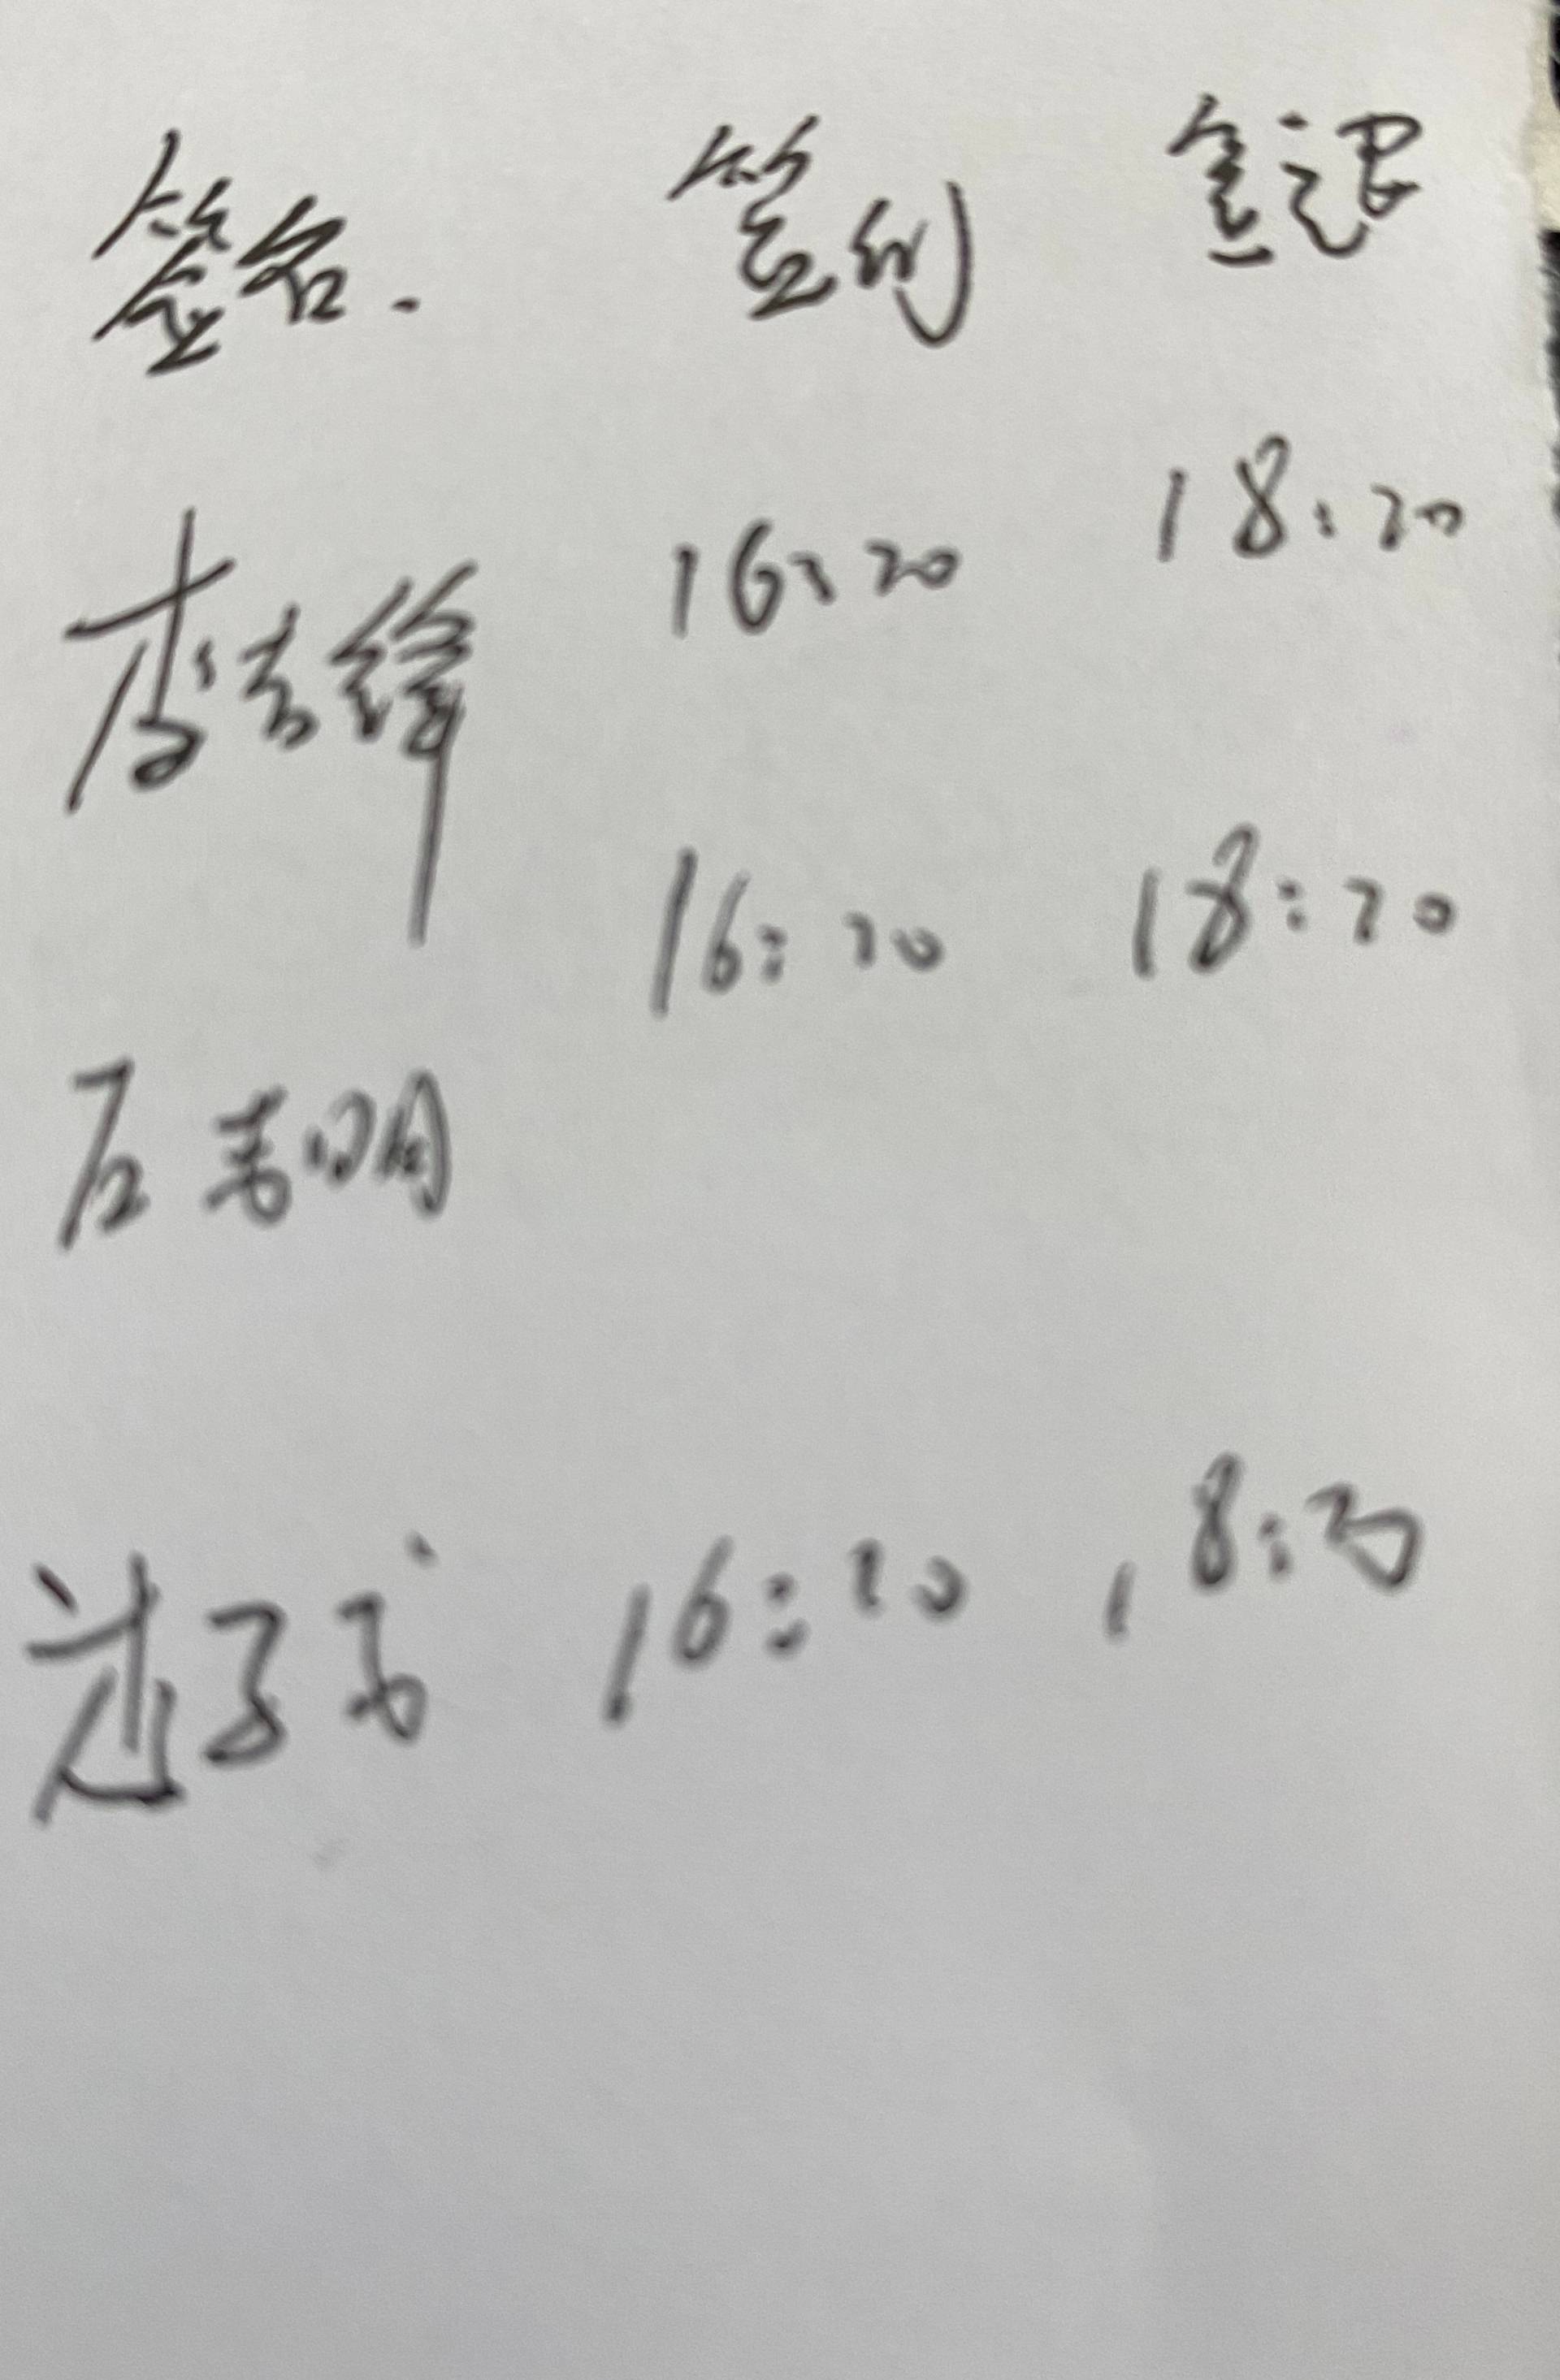 签名. 签到 签退
李吉绎 16:20 18:20
16:20 18:20
石善明
16:20 18:20